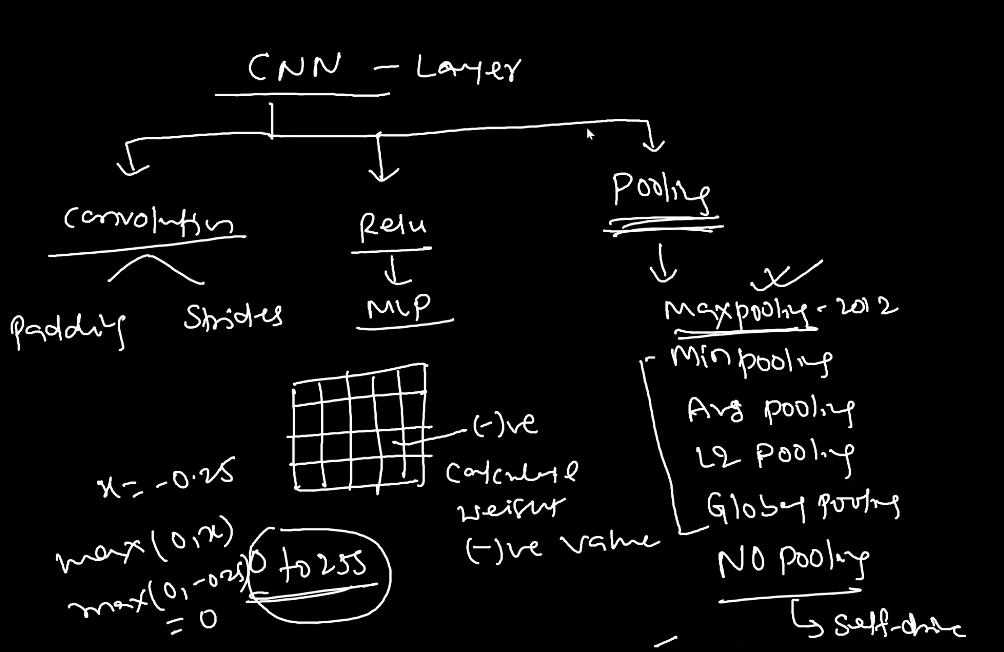 CNN - Layer
Convolution
Relu
Pooling
Padding
Strides
MLP
Maxpooling - 2012
Min pooling
Avg pooling
L2 pooling
Global pooling
NO pooling
self-drive
(-)ve
calculate
weight
(-)ve value
x = -0.25
max(0,x)
max(0,-0.25)
= 0
0 to 255